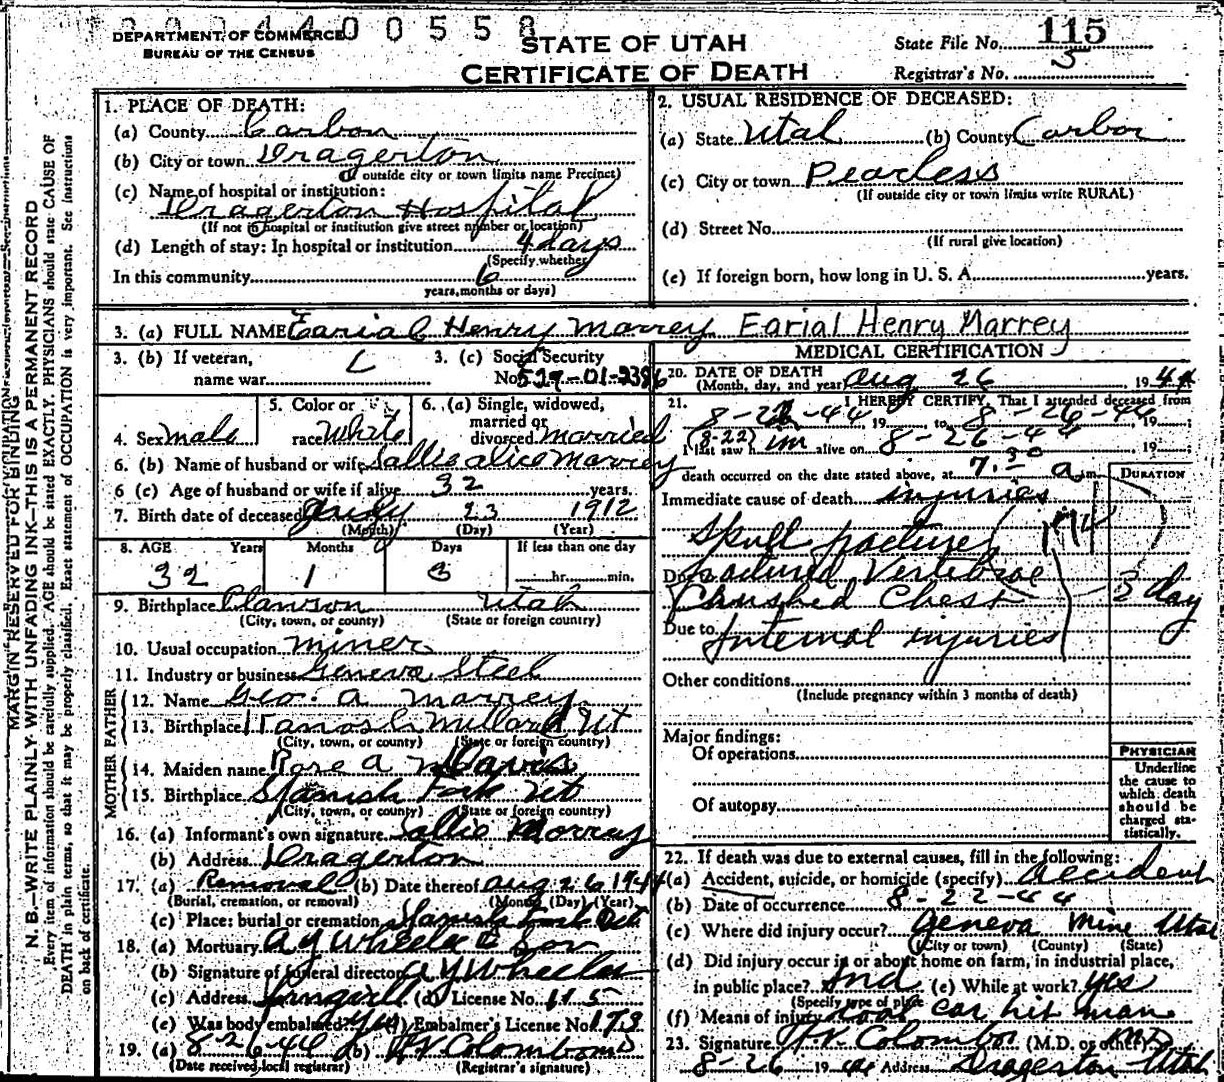 20 2 4 4 0 0 5 5 8
DEPARTMENT OF COMMERCE
BUREAU OF THE CENSUS
STATE OF UTAH
CERTIFICATE OF DEATH
State File No. 115
Registrar's No. 5
MARGIN RESERVED FOR BINDING
N. B.—WRITE PLAINLY WITH UNFADING INK—THIS IS A PERMANENT RECORD
Every item of information should be carefully supplied. AGE should be stated EXACTLY. PHYSICIANS should state CAUSE OF
DEATH in plain terms, so that it may be properly classified. Exact statement of OCCUPATION is very important. See instructions
on back of certificate.
1. PLACE OF DEATH:
(a) County Carbon
(b) City or town Dragerton
outside city or town limits name Precinct)
(c) Name of hospital or institution:
Dragerton Hospital
(If not in hospital or institution give street number or location)
(d) Length of stay: In hospital or institution 4 days
(Specify whether
In this community
years, months or days)
2. USUAL RESIDENCE OF DECEASED:
(a) State Utah (b) County Carbon
(c) City or town Pearless
(If outside city or town limits write RURAL)
(d) Street No.
(If rural give location)
(e) If foreign born, how long in U. S. A. years.
3. (a) FULL NAME Earial Henry Marrey Earial Henry Marrey
3. (b) If veteran,
name war
3. (c) Social Security
No. 529-01-2386
4. Sex male
5. Color or
race White
6. (a) Single, widowed,
married or
divorced married
6. (b) Name of husband or wife Sallie Alice Marrey
6 (c) Age of husband or wife if alive 32 years.
7. Birth date of deceased July 23 1912
(Month) (Day) (Year)
8. AGE Years Months Days If less than one day
32 1 3 hr. min.
9. Birthplace Clawson Utah
(City, town, or county) (State or foreign country)
10. Usual occupation miner
11. Industry or business Geneva Steel
FATHER
12. Name Geo. A Marrey
13. Birthplace Kanosh Millard Ut
(City, town, or county) (State or foreign country)
MOTHER
14. Maiden name Rose A Davis
15. Birthplace Spanish Fork Ut
(City, town, or county) (State or foreign country)
16. (a) Informant's own signature Sallie Marrey
(b) Address Dragerton
17. (a) Removal (b) Date thereof Aug 26 1944
(Burial, cremation, or removal) (Month) (Day) (Year)
(c) Place: burial or cremation Spanish Fork Ut
18. (a) Mortuary A Y Wheeler & Son
(b) Signature of funeral director A Y Wheeler
(c) Address Springville (d) License No. 115
(e) Was body embalmed? yes (f) Embalmer's License No. 179
19. (a) 8-26-44 (b) H V Colombo MD
(Date received local registrar) (Registrar's signature)
MEDICAL CERTIFICATION
20. DATE OF DEATH
(Month, day, and year) Aug 26 1944
21. I HEREBY CERTIFY, That I attended deceased from
8-22-44, 19 to 8-26-44, 19 ;
(8-22)
I last saw him alive on 8-26-44 19 ;
death occurred on the date stated above, at 7:30 a m.
DURATION
Immediate cause of death injuries
Skull fracture
Due to fractured Vertebrae
Crushed Chest 3 day
Due to Internal injuries
Other conditions
(Include pregnancy within 3 months of death)
Major findings:
Of operations
Of autopsy
PHYSICIAN
Underline
the cause to
which death
should be
charged sta-
tistically.
22. If death was due to external causes, fill in the following:
(a) Accident, suicide, or homicide (specify) accident
(b) Date of occurrence 8-22-44
(c) Where did injury occur? Geneva Mine Utah
(City or town) (County) (State)
(d) Did injury occur in or about home on farm, in industrial place,
in public place? Ind (e) While at work? Yes
(Specify type of place
(f) Means of injury coal car hit man
23. Signature H. V. Colombo MD (M.D. or other)
8-26 1944 Address Dragerton Utah